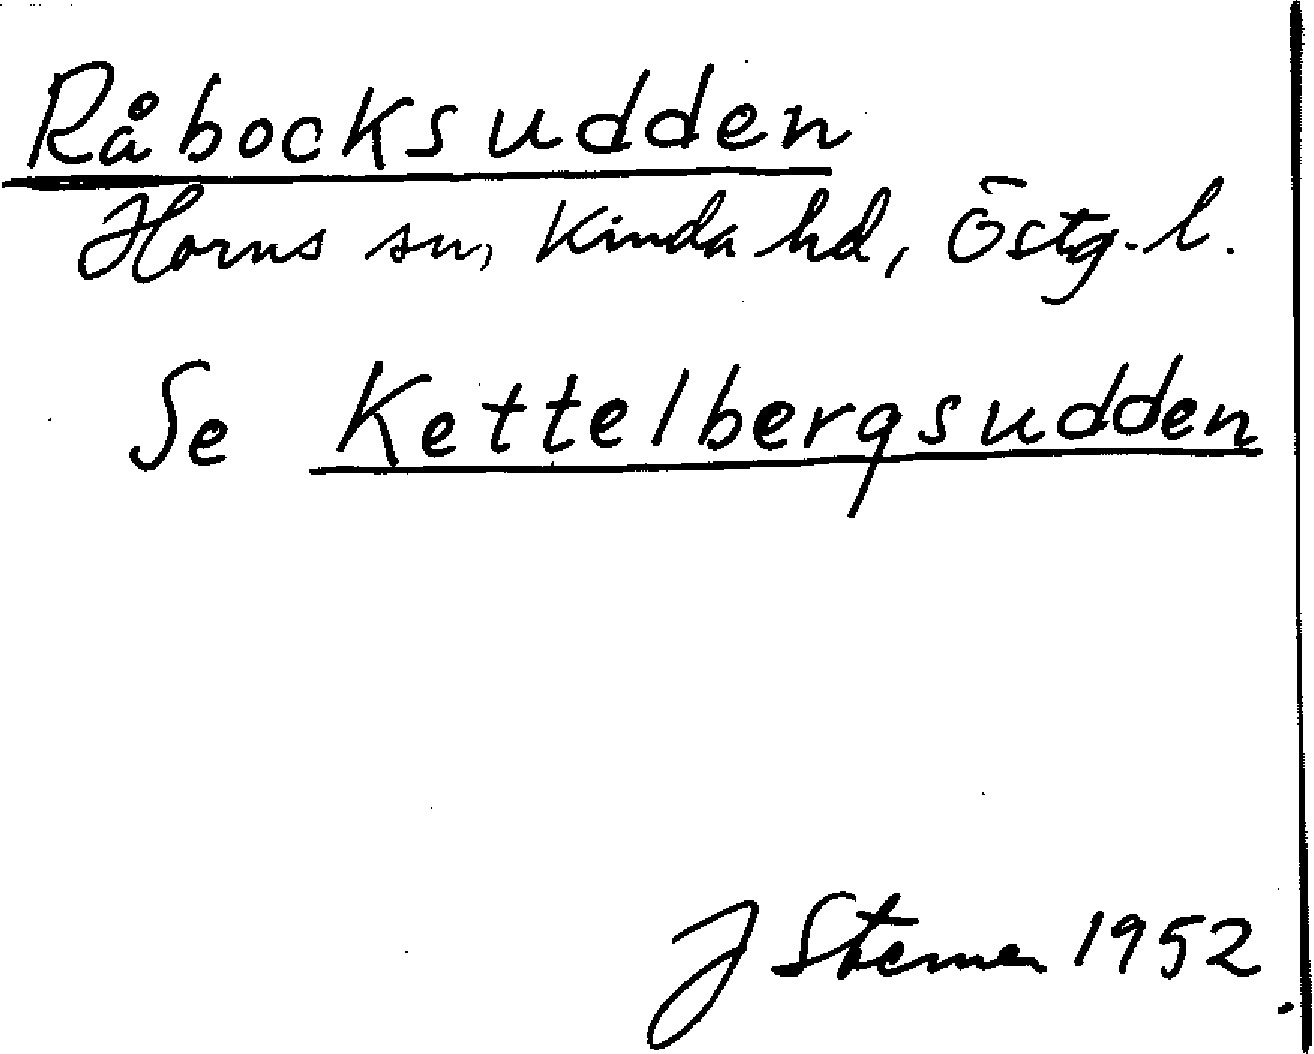 Råbocksudden
Horns sn, Kinda hd, Östg. l.
Se Kettelbergsudden
J Sterner 1952.